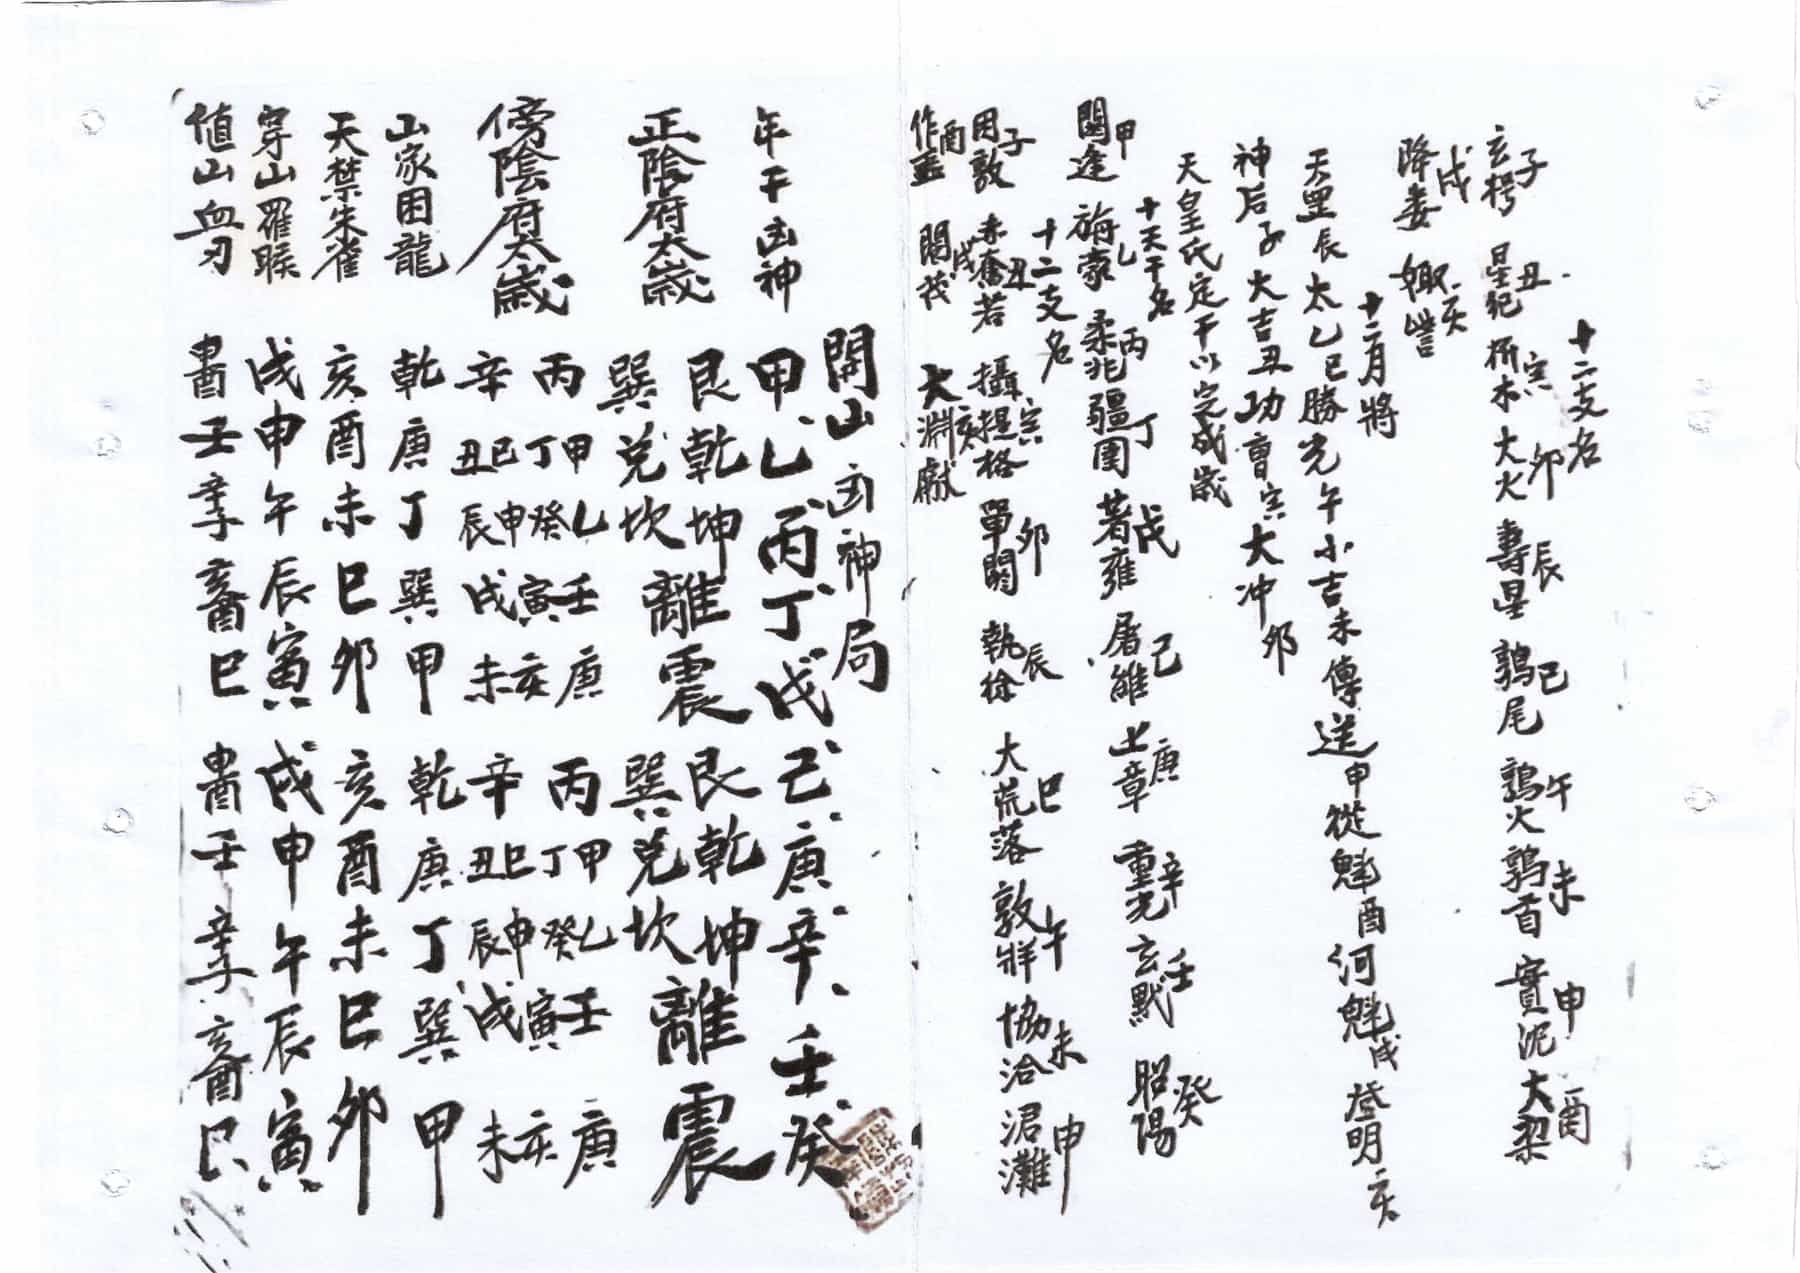 十二支名
子 丑 寅 卯 辰 巳 午 未 申 酉
玄枵 星紀 析木 大火 壽星 鶉尾 鶉火 鶉首 實泥 大梁
戌 亥
降婁 娵訾
十二月將
天罡辰 太乙巳 勝光午 小吉未 傳送申 從魁酉 河魁戌 登明亥
神后子 大吉丑 功曹寅 大冲卯
天皇氏定干以定成歲
十天干名
甲 乙 丙 丁 戊 己 庚 辛 壬 癸
閼逢 旃蒙 柔兆 疆圉 著雍 屠維 上章 重光 玄黓 昭陽
十二支名
子 丑 寅 卯 辰 巳 午 未 申
困敦 赤奮若 攝提格 單閼 執徐 大荒落 敦牂 協洽 涒灘
酉 戌 亥
作噩 閹茂 大淵獻
開山凶神局
年干凶神 甲、乙、丙、丁、戊、己、庚、辛、壬、癸
正陰府太歲 艮乾坤離震艮乾坤離震
巽兌坎 巽兌坎
傍陰府太歲 丙甲乙壬庚 丙甲乙壬庚
丁癸寅亥 丁癸寅亥
辛巳申戌未 辛巳申戌未
丑辰 丑辰
山家困龍 乾庚丁巽甲 乾庚丁巽甲
天禁朱雀 亥酉未巳卯 亥酉未巳卯
穿山羅睺 戌申午辰寅 戌申午辰寅
值山血刃 壬 辛子 亥酉 巳 壬 辛子 亥酉 巳